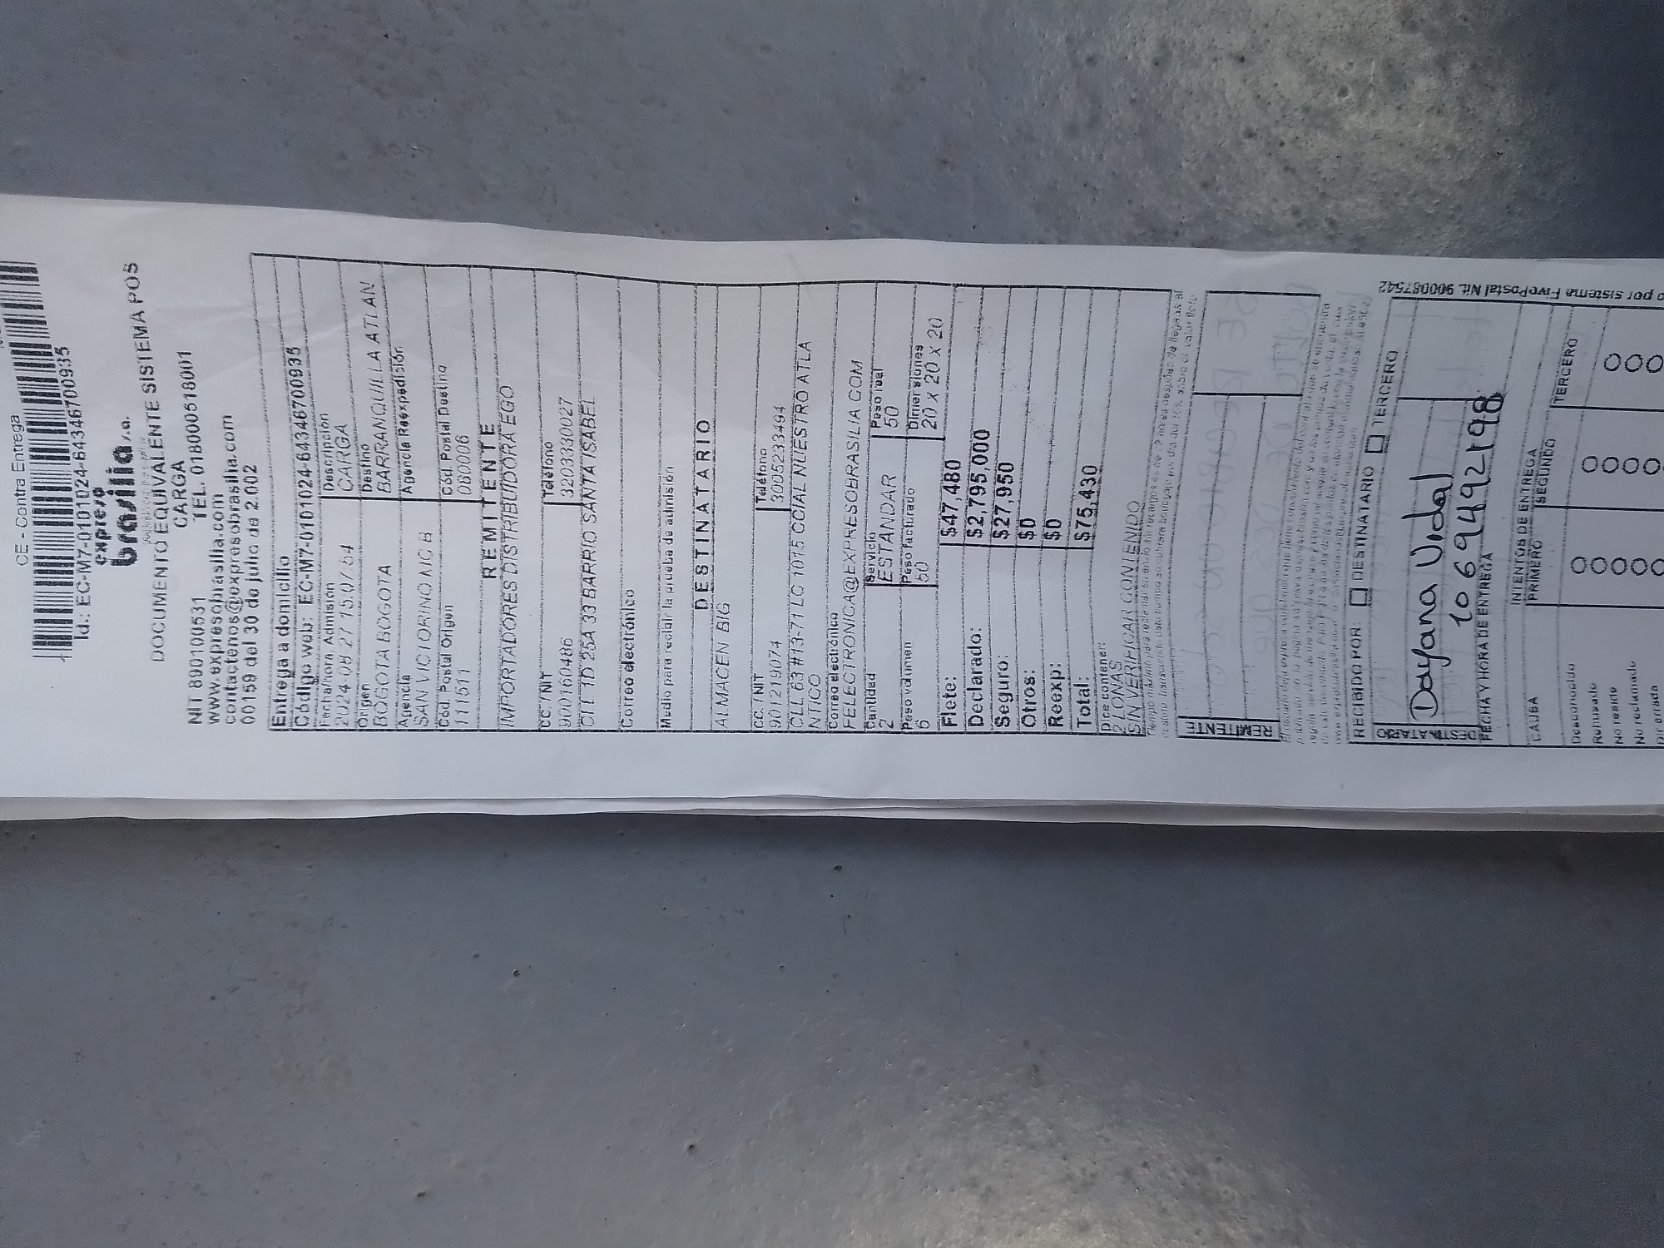 CE - Contra Entrega
Id.: EC-M7-0101024-6434670­0935
expreso
brasilia s.a.
DOCUMENTO EQUIVALENTE SISTEMA POS
CARGA
NIT 890100531 TEL. 018000518001
www.expresobrasilia.com
contactenos@expresobrasilia.com
00159 del 30 de julio de 2.002
Entrega a domicilio
Código web: EC-M7-0101024-64346700935
Fecha/hora Admisión Descripción
2024-08-27 15:07:54 CARGA
Origen Destino
BOGOTA BOGOTA BARRANQUILLA ATLAN
Agencia Agencia Reexpedición
SAN VICTORINO NIC B
Cod. Postal Origen Cód. Postal Destino
111511 080006
REMITENTE
IMPORTADORES DISTRIBUIDORA EGO
CC. / NIT Teléfono
900160486 3203330027
CLL 1D 25A 33 BARRIO SANTA ISABEL
Correo electrónico
Medio para recibir la prueba de admisión
DESTINATARIO
ALMACEN BIG
CC. / NIT Teléfono
901219074 3005233494
CLL 63 #13-71 LC 107 5 CCIAL NUESTRO ATLA
NTICO
Correo electrónico
FELECTRONICA@EXPRESOBRASILIA.COM
Cantidad Servicio Peso real
2 ESTANDAR 50
Peso volumen Peso facturado Dimensiones
6 50 20 x 20 x 20
Flete: $47,480
Declarado: $2,795,000
Seguro: $27,950
Otros: $0
Reexp: $0
Total: $75,430
Dice contener:
2 LONAS
SIN VERIFICAR CONTENIDO
REMITENTE
RECIBIDO POR DESTINATARIO TERCERO
DESTINATARIO
Dayana Vidal
1069492198
FECHA Y HORA DE ENTREGA
INTENTOS DE ENTREGA
CAUSA PRIMERO SEGUNDO TERCERO
Desconocido
Rehusado
No reside
No reclamado
Dir. errada
por sistema FivePostal Nit. 900087542